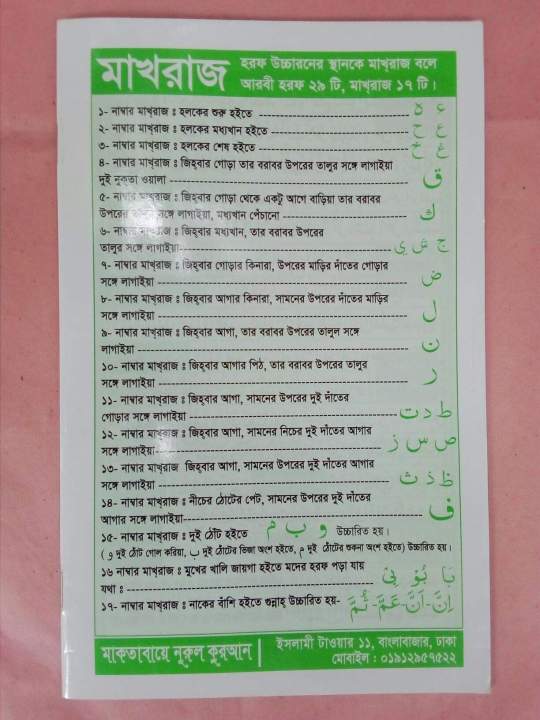 মাখরাজ
হরফ উচ্চারনের স্থানকে মাখ্‌রাজ বলে
আরবী হরফ ২৯ টি, মাখ্‌রাজ ১৭ টি।
১- নাম্বার মাখ্‌রাজ ঃ হলকের শুরু হইতে ء ه
২- নাম্বার মাখ্‌রাজ ঃ হলকের মধ্যখান হইতে ع ح
৩- নাম্বার মাখ্‌রাজ ঃ হলকের শেষ হইতে غ خ
৪- নাম্বার মাখ্‌রাজ ঃ জিহ্বার গোড়া তার বরাবর উপরের তালুর সঙ্গে লাগাইয়া
দুই নুকতা ওয়ালা ق
৫- নাম্বার মাখ্‌রাজ ঃ জিহ্বার গোড়া থেকে একটু আগে বাড়িয়া তার বরাবর
উপরের তালুর সঙ্গে লাগাইয়া, মধ্যখান পেঁচানো ك
৬- নাম্বার মাখ্‌রাজ ঃ জিহ্বার মধ্যখান, তার বরাবর উপরের
তালুর সঙ্গে লাগাইয়া ج ش ي
৭- নাম্বার মাখ্‌রাজ ঃ জিহ্বার গোড়ার কিনারা, উপরের মাড়ির দাঁতের গোড়ার
সঙ্গে লাগাইয়া ض
৮- নাম্বার মাখ্‌রাজ ঃ জিহ্বার আগার কিনারা, সামনের উপরের দাঁতের মাড়ির
সঙ্গে লাগাইয়া ل
৯- নাম্বার মাখ্‌রাজ ঃ জিহ্বার আগা, তার বরাবর উপরের তালুল সঙ্গে
লাগাইয়া ن
১০- নাম্বার মাখ্‌রাজ ঃ জিহ্বার আগার পিঠ, তার বরাবর উপরের তালুর
সঙ্গে লাগাইয়া ر
১১- নাম্বার মাখ্‌রাজ ঃ জিহ্বার আগা, সামনের উপরের দুই দাঁতের
গোড়ার সঙ্গে লাগাইয়া ط د ت
১২- নাম্বার মাখ্‌রাজ ঃ জিহ্বার আগা, সামনের নিচের দুই দাঁতের আগার
সঙ্গে লাগাইয়া ص س ز
১৩- নাম্বার মাখ্‌রাজ জিহ্বার আগা, সামনের উপরের দুই দাঁতের আগার
সঙ্গে লাগাইয়া ظ ذ ث
১৪- নাম্বার মাখ্‌রাজ ঃ নীচের ঠোটের পেট, সামনের উপরের দুই দাঁতের
আগার সঙ্গে লাগাইয়া ف
১৫- নাম্বার মাখ্‌রাজ ঃ দুই ঠোঁট হইতে و ب م উচ্চারিত হয়।
( و দুই ঠোঁট গোল করিয়া, ب দুই ঠোঁটের ভিজা অংশ হইতে, م দুই ঠোঁটের শুকনা অংশ হইতে) উচ্চারিত হয়।
১৬ নাম্বার মাখ্‌রাজ ঃ মুখের খালি জায়গা হইতে মদের হরফ পড়া যায়
যথা ঃ بَا بُوْ بِىْ
১৭- নাম্বার মাখ্‌রাজ ঃ নাকের বাঁশি হইতে গুন্নাহ্ উচ্চারিত হয়- اِنَّ - اَنَّ - عَمَّ - ثُمَّ
মাকতাবায়ে নুরুল কুরআন
ইসলামী টাওয়ার ১১, বাংলাবাজার, ঢাকা
মোবাইল : ০১৯১২৯৫৭৫২২